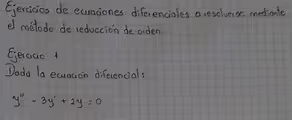 Ejercicios de ecuaciones diferenciales a resolverse mediante
el método de reducción de orden.
Ejercicio 1
Dada la ecuación diferencial:
y'' - 3y' + 2y = 0